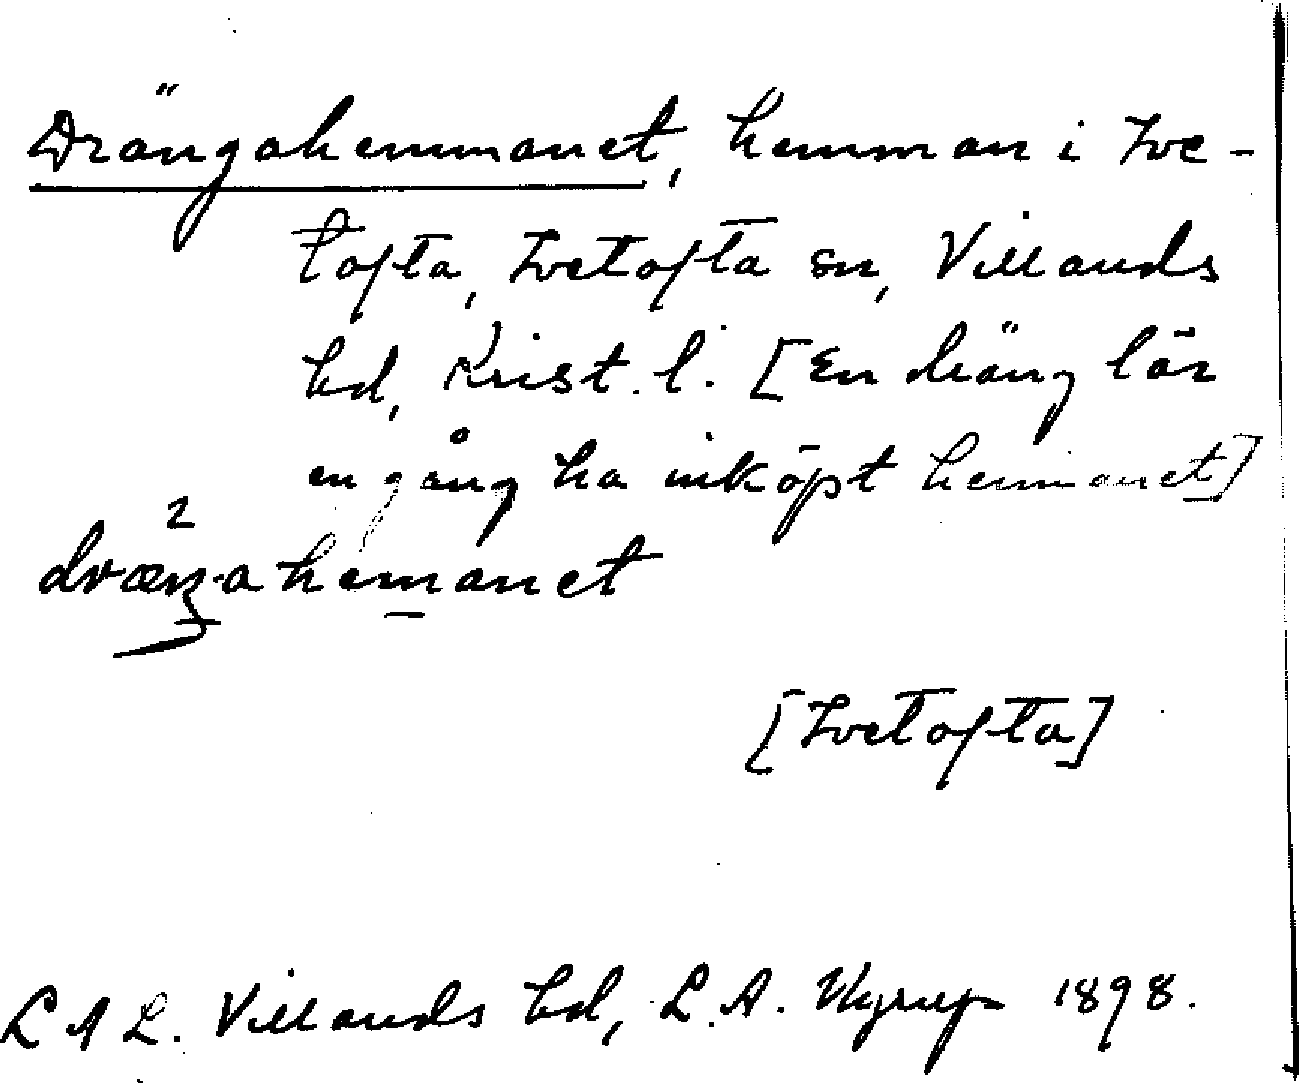 Drängahemmanet, hemman i Ive-
tofta, Ivetofta sn, Villands
hd, Krist. l. [En dräng lär
en gång ha inköpt hemmanet]
2
hemanet
[Ivetofta]
L A L. Villands hd, L. A. 1898.